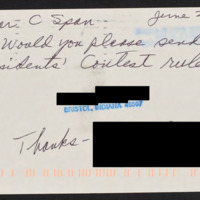 C Span
June
Would you please send
Contest rules
BRISTOL, INDIANA
Thanks-